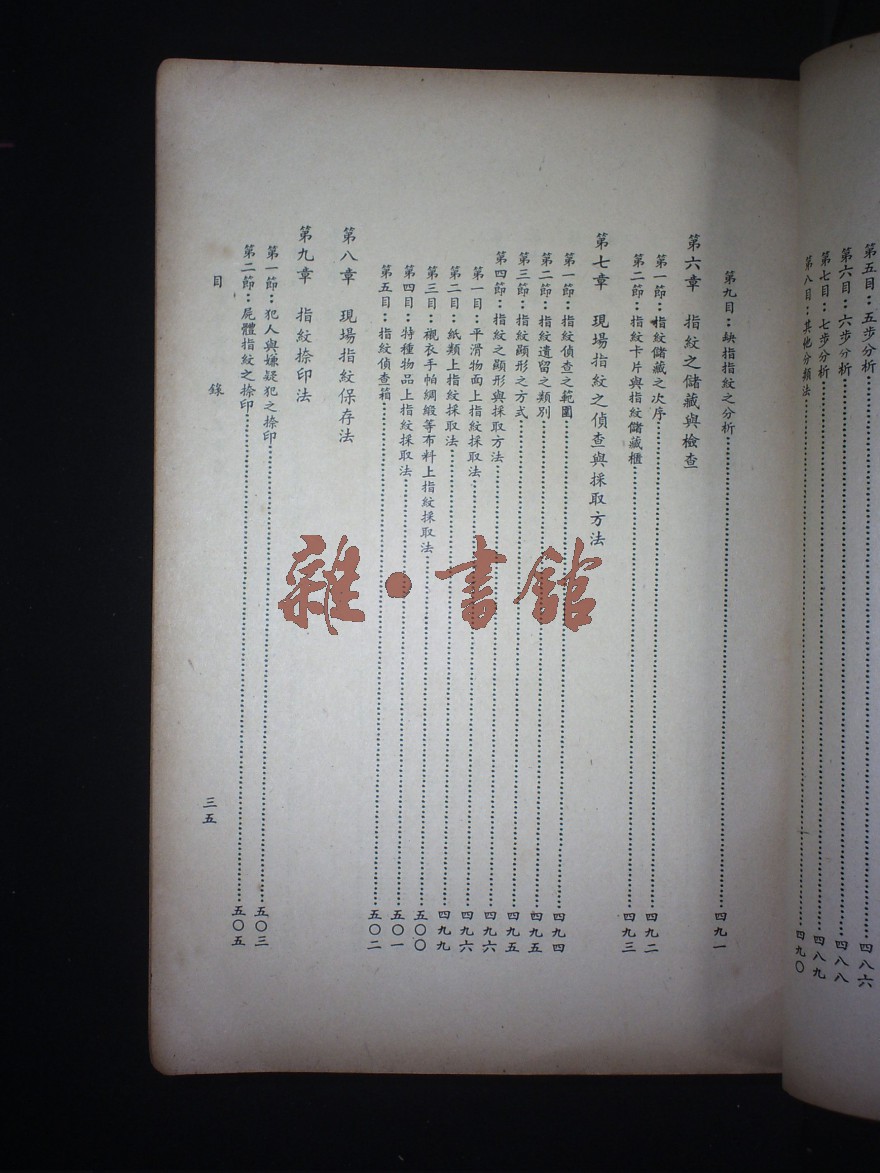 第五目：五步分析……四八六
第六目：六步分析……四八八
第七目：七步分析……四八九
第八目：其他分類法……四九〇
第九目：缺指指紋之分析……四九一
第六章　指紋之儲藏與檢查
第一節：指紋儲藏之次序……四九二
第二節：指紋卡片與指紋儲藏櫃……四九三
第七章　現場指紋之偵查與採取方法
第一節：指紋偵查之範圍……四九四
第二節：指紋遺留之類別……四九五
第三節：指紋顯形之方式……四九五
第四節：指紋之顯形與採取方法……四九六
第一目：平滑物面上指紋採取法……四九六
第二目：紙類上指紋採取法……四九九
第三目：襯衣手帕綢緞等布料上指紋採取法……五〇〇
第四目：特種物品上指紋採取法……五〇一
第五目：指紋偵查箱……五〇二
第八章　現場指紋保存法
第九章　指紋捺印法
第一節：犯人與嫌疑犯之捺印……五〇三
第二節：屍體指紋之捺印……五〇五
目錄
三五
雜·書館